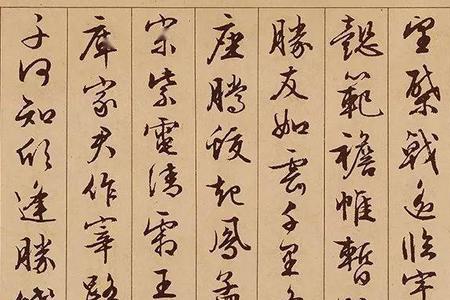 望棨戟遙臨宇
懿範襜帷暫
勝友如雲千里
座騰蛟起鳳孟
宗紫電清霜王
庫家君作宰路
子何知躬逢勝餞